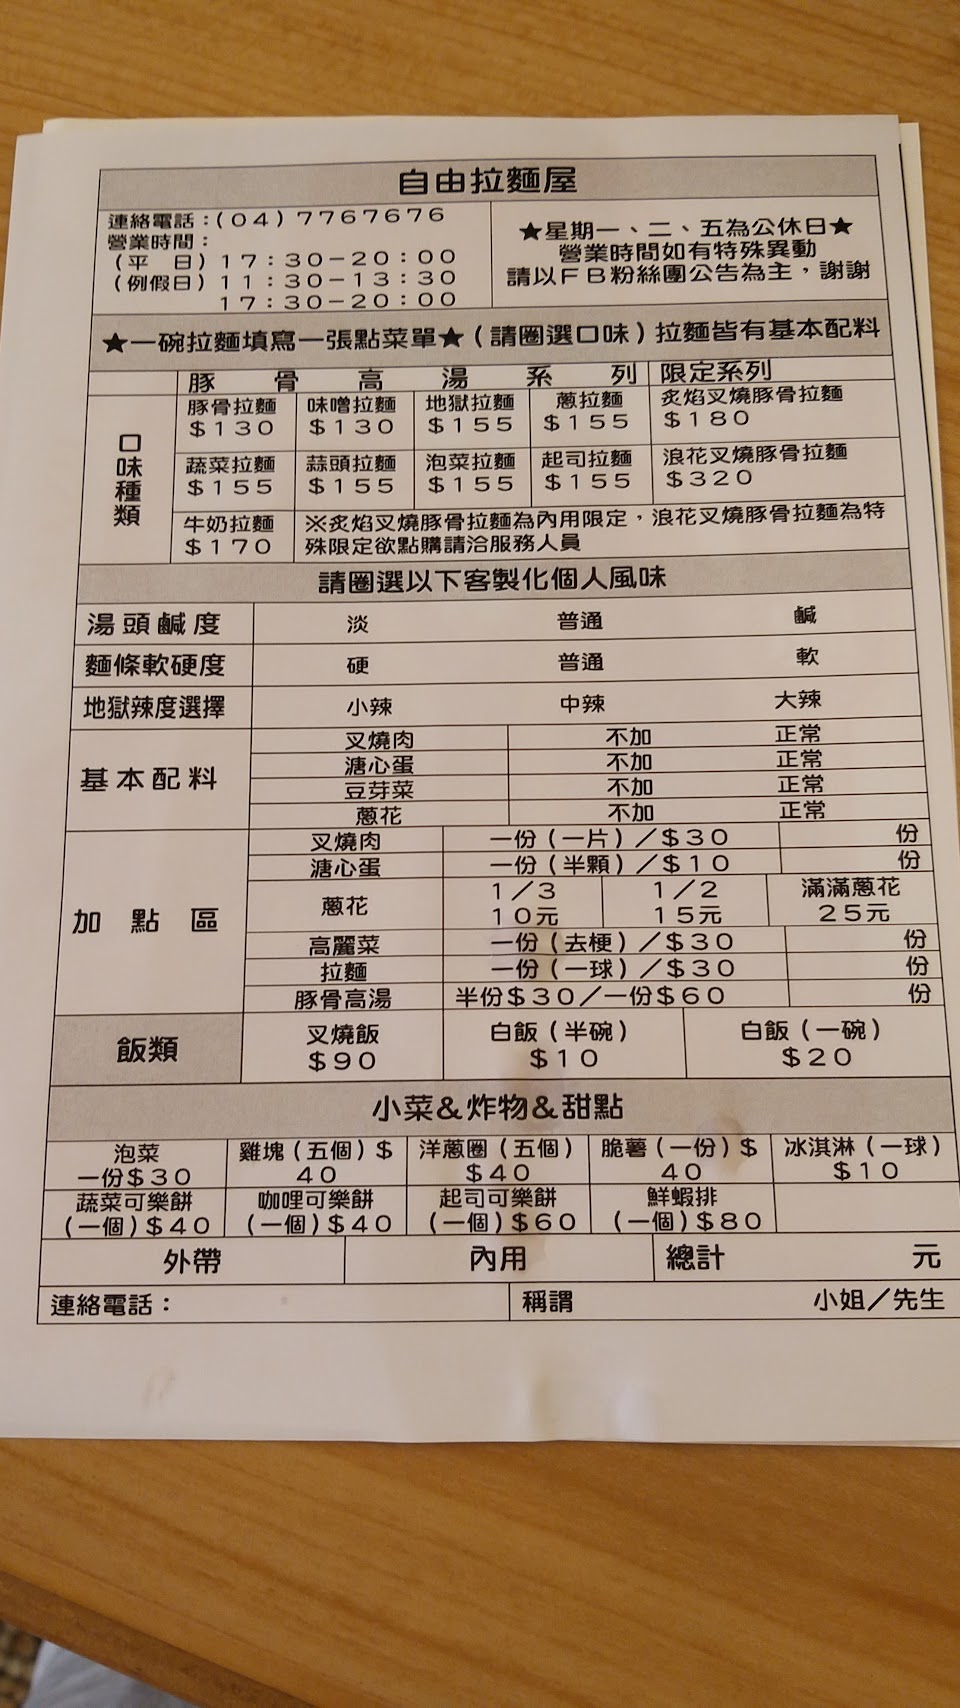 自由拉麵屋
連絡電話：(04) 7767676
營業時間：
(平　日) 17：30－20：00
(例假日) 11：30－13：30
17：30－20：00
★星期一、二、五為公休日★
營業時間如有特殊異動
請以FB粉絲團公告為主，謝謝
★一碗拉麵填寫一張點菜單★(請圈選口味) 拉麵皆有基本配料
豚骨高湯系列 限定系列
口味種類
豚骨拉麵 味噌拉麵 地獄拉麵 蔥拉麵 炙焰叉燒豚骨拉麵
$130 $130 $155 $155 $180
蔬菜拉麵 蒜頭拉麵 泡菜拉麵 起司拉麵 浪花叉燒豚骨拉麵
$155 $155 $155 $155 $320
牛奶拉麵
$170
※炙焰叉燒豚骨拉麵為內用限定，浪花叉燒豚骨拉麵為特
殊限定欲點購請洽服務人員
請圈選以下客製化個人風味
湯頭鹹度 淡 普通 鹹
麵條軟硬度 硬 普通 軟
地獄辣度選擇 小辣 中辣 大辣
基本配料
叉燒肉 不加 正常
溏心蛋 不加 正常
豆芽菜 不加 正常
蔥花 不加 正常
加點區
叉燒肉 一份(一片)／$30 份
溏心蛋 一份(半顆)／$10 份
蔥花
1／3 1／2 滿滿蔥花
10元 15元 25元
高麗菜 一份(去梗)／$30 份
拉麵 一份(一球)／$30 份
豚骨高湯 半份$30／一份$60 份
飯類
叉燒飯 白飯(半碗) 白飯(一碗)
$90 $10 $20
小菜&炸物&甜點
泡菜 雞塊(五個)$ 洋蔥圈(五個) 脆薯(一份)$ 冰淇淋(一球)
一份$30 40 $40 40 $10
蔬菜可樂餅 咖哩可樂餅 起司可樂餅 鮮蝦排
(一個)$40 (一個)$40 (一個)$60 (一個)$80
外帶 內用 總計 元
連絡電話： 稱謂 小姐／先生